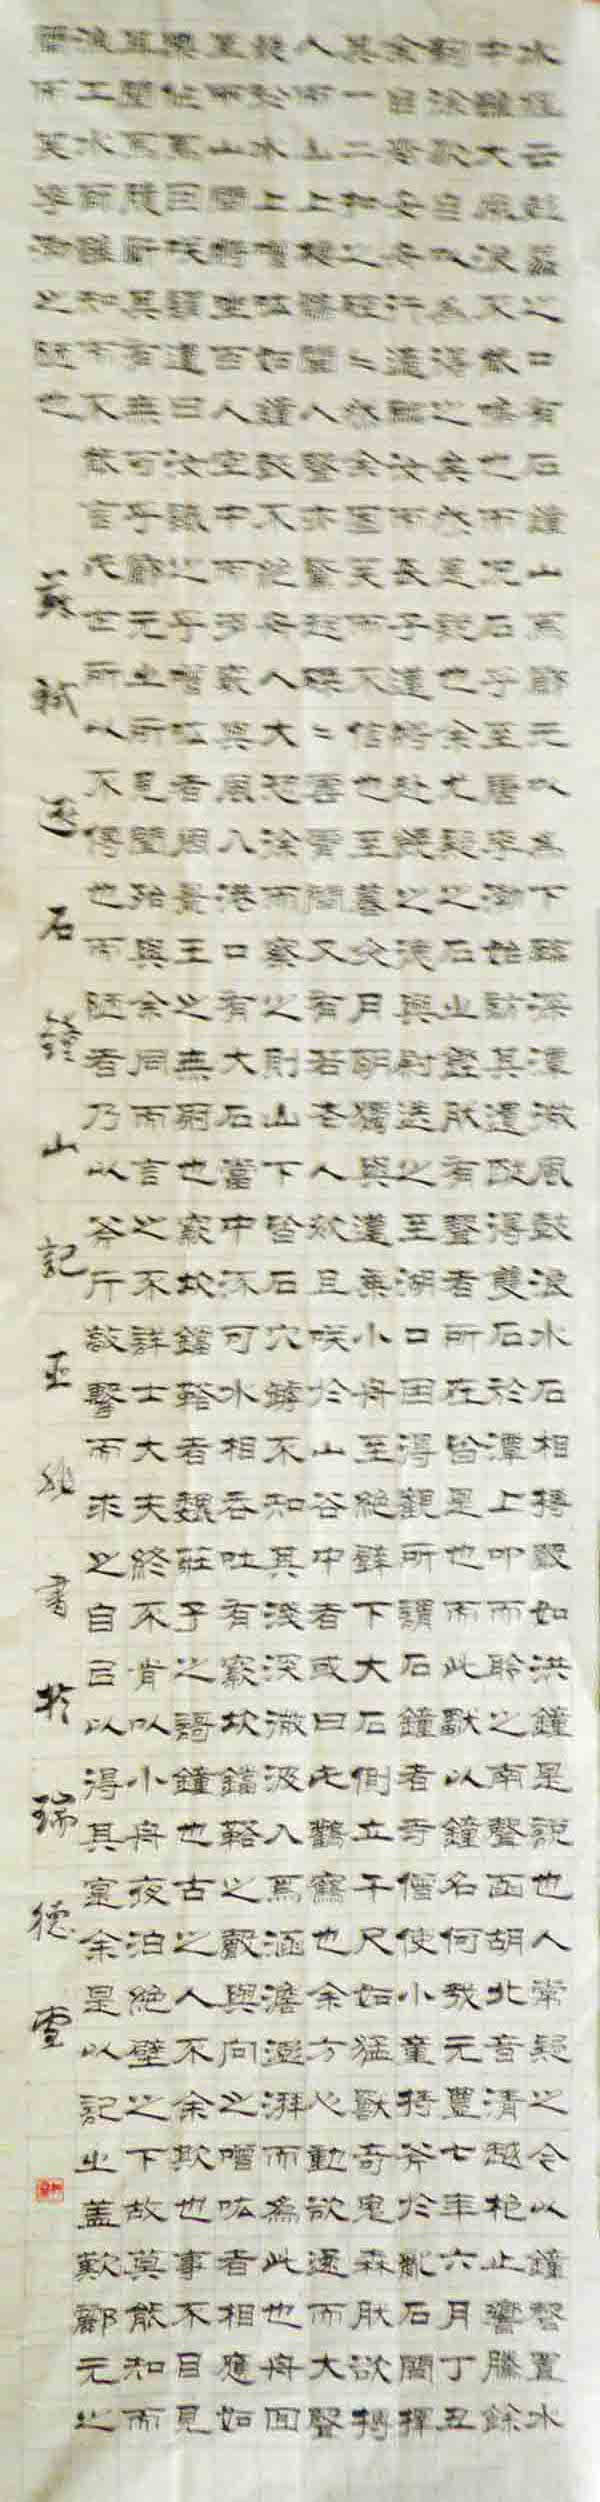 水經云彭蠡之口有石鐘山焉酈元以為下臨深潭微風鼓浪水石相搏聲如洪鐘是說也人常疑之今以鐘磬置水
中雖大風浪不能鳴也而況石乎至唐李渤始訪其遺蹤得雙石於潭上叩而聆之南聲函胡北音清越枹止響騰餘
韻徐歇自以為得之矣然是說也余尤疑之石之鏗然有聲者所在皆是也而此獸以鐘名何哉元豐七年六月丁丑
余自齊安舟行適臨汝而長子邁將赴饒之德興尉送之至湖口因得觀所謂石鐘者寺僧使小童持斧於亂石間擇
其一二扣之硿〻然余固笑而不信也至暮夜月明獨與邁乘小舟至絕壁下大石側立千尺如猛獸奇鬼森然欲搏
人而山上棲鶻聞人聲亦驚起磔〻雲霄間又有若老人欬且咲於山谷中者或曰此鸛鶴也余方心動欲還而大聲
發於水上噌吰如鐘鼓不絕舟人大恐徐而察之則山下皆石穴罅不知其淺深微波入焉涵澹澎湃而為此也舟回
至兩山間將坐百人空中而多竅與風入港口有大石當中流可水相吞吐有窾坎鏜鞳之聲與向之噌吰者相應如
樂作焉因咲謂邁曰汝識之乎噌吰者周景王之無射也窾坎鏜鞳者魏莊子之歌鐘也古之人不余欺也事不目見
耳聞而臆斷其有無可乎酈元之所見聞殆與余同而言之不詳士大夫終不肯以小舟夜泊絕壁之下故莫能知而
漁工水師雖知而不能言此世所以不傳也而陋者乃以斧斤敲擊而求之自已以得其實余是以記之蓋歎酈元之
簡而笑李渤之陋也
蘇軾遊石鐘山記王書於瑞德雪